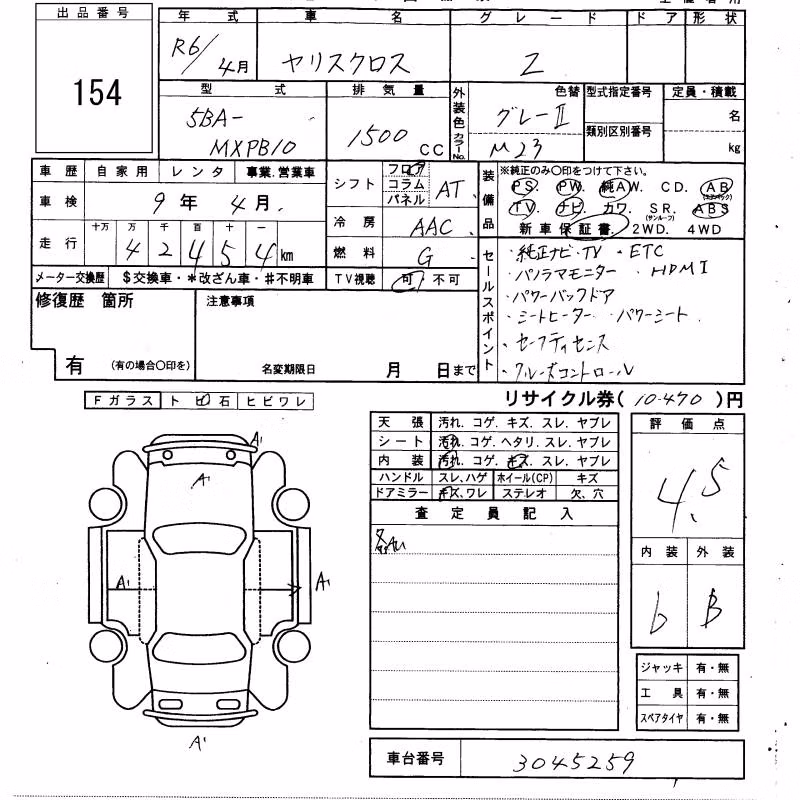 出品番号
154
年式 車名 グレード ドア 形状
R6/4月 ヤリスクロス Z
型式 排気量 外装色 色替 型式指定番号 定員・積載
5BA-MXPB10 1500 CC グレーII 名
カラーNo. M23 類別区別番号 kg
車歴 自家用 レンタ 事業.営業車
車検 9年4月.
走行 十万 万 千 百 十 一
42454 km
メーター交換歴 $交換車・*改ざん車・#不明車
シフト フロア コラム パネル AT.
冷房 AAC.
燃料 G
TV視聴 可 不可
装備品 ※純正のみ○印をつけて下さい。
PS. PW. 純AW. CD. AB (エアバック)
TV. ナビ. カワ. SR. (サンルーフ) ABS
新車保証書. 2WD. 4WD
セールスポイント
・純正ナビ・TV・ETC
・パノラマモニター・HDMI
・パワーバックドア
・シートヒーター・パワーシート.
・セーフティセンス
・クルーズコントロール
修復歴 箇所 注意事項
有 (有の場合○印を) 名変期限日 月 日まで
リサイクル券(10,470)円
Fガラス トビ石 ヒビワレ
天張 汚れ. コゲ. キズ. スレ. ヤブレ
シート 汚れ. コゲ. ヘタリ. スレ. ヤブレ
内装 汚れ. コゲ. キズ. スレ. ヤブレ
ハンドル スレ,ハゲ ホイール(CP) キズ
ドアミラー キズ,ワレ ステレオ 欠、穴
査定員記入
評価点
4.5
内装 外装
b B
A1
A1
A1 A1
A1
ジャッキ 有・無
工具 有・無
スペアタイヤ 有・無
車台番号 3045259